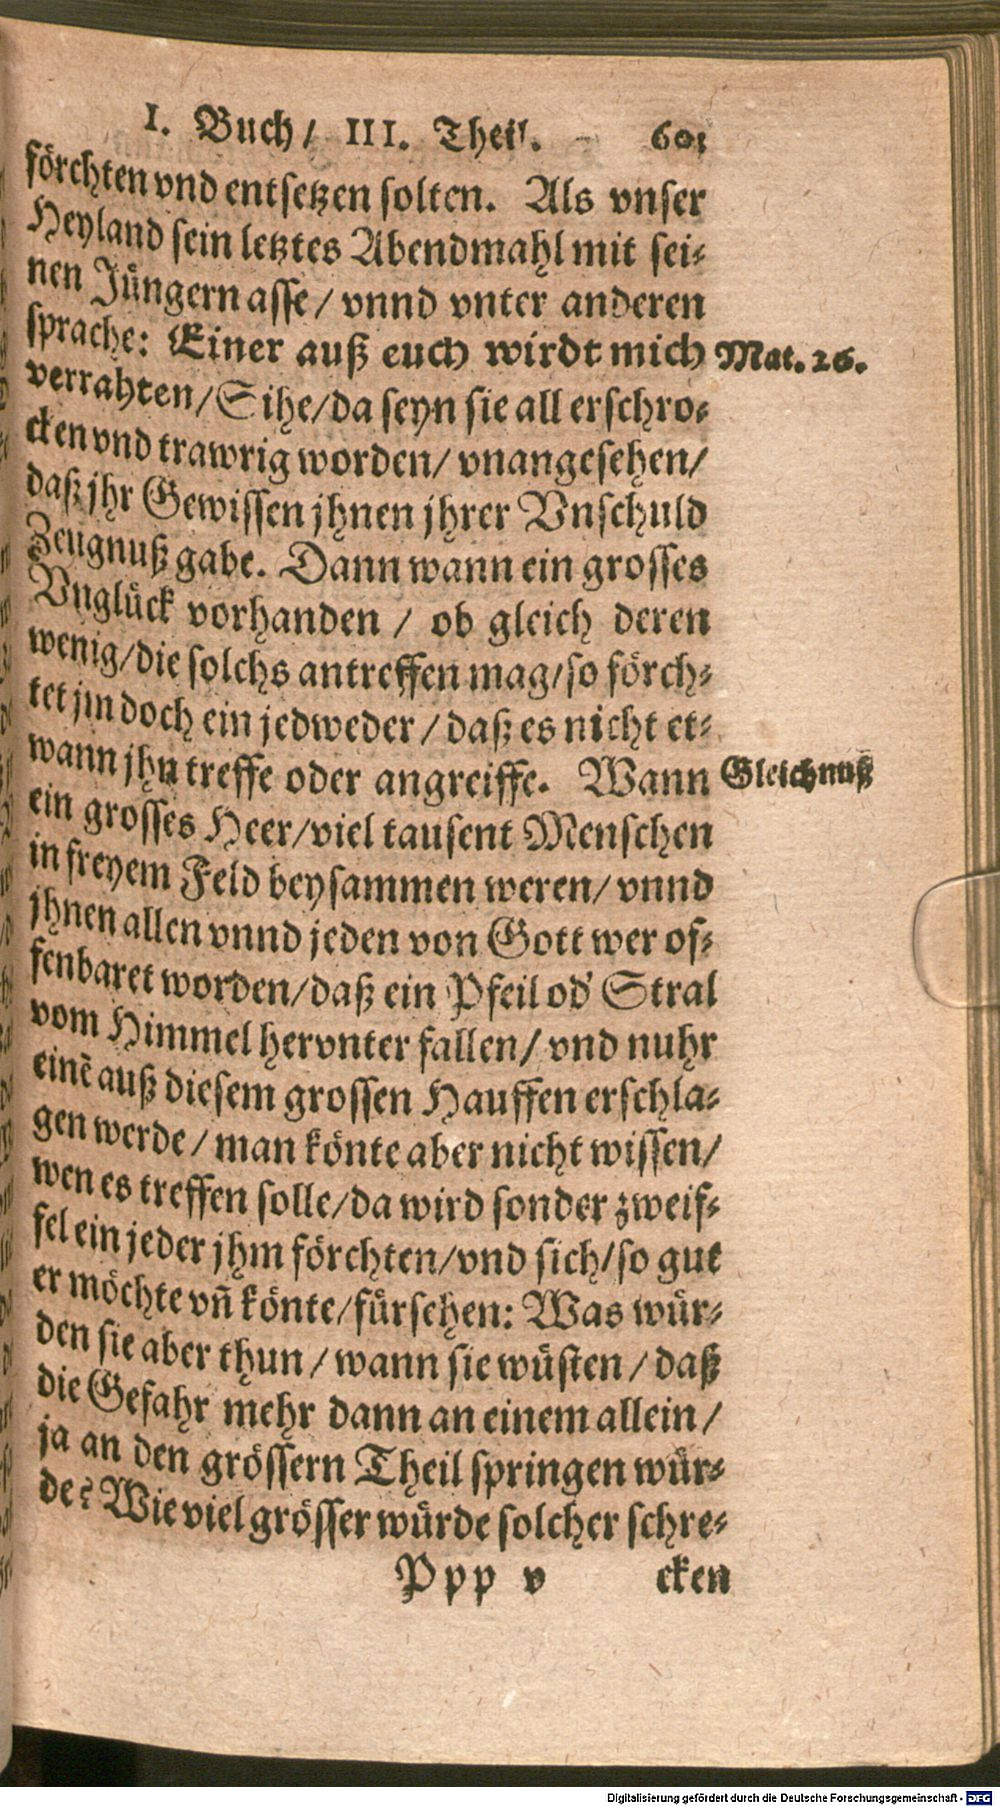 I. Buch/ III. Theil. 601
förchten vnd entsetzen solten. Als vnser
Heyland sein letztes Abendmahl mit sei-
nen Jüngern asse/ vnnd vnter anderen
sprache: Einer auß euch wirdt mich Mat. 26.
verrahten/ Sihe/ da seyn sie all erschro-
cken vnd trawrig worden/ vnangesehen/
daß jhr Gewissen jhnen jhrer Vnschuld
Zeugnuß gabe. Dann wann ein grosses
Vnglück vorhanden / ob gleich deren
wenig/ die solchs antreffen mag/ so förch-
tet jm doch ein jedweder / daß es nicht et-
wann jhn treffe oder angreiffe. Wann Gleichnuß
ein grosses Heer/ viel tausent Menschen
in freyem Feld beysammen weren/ vnnd
jhnen allen vnnd jeden von Gott wer of-
fenbaret worden/ daß ein Pfeil od' Stral
vom Himmel hervnter fallen/ vnd nuhr
einē auß diesem grossen Hauffen erschla-
gen werde/ man könte aber nicht wissen/
wen es treffen solle/ da wird sonder zweif-
fel ein jeder jhm förchten/ vnd sich/ so gut
er möchte vñ könte/ fürsehen: Was wür-
den sie aber thun / wann sie wüsten / daß
die Gefahr mehr dann an einem allein/
ja an den grössern Theil springen wür-
de? Wie viel grösser würde solcher schre-
Ppp v cken
Digitalisierung gefördert durch die Deutsche Forschungsgemeinschaft - DFG